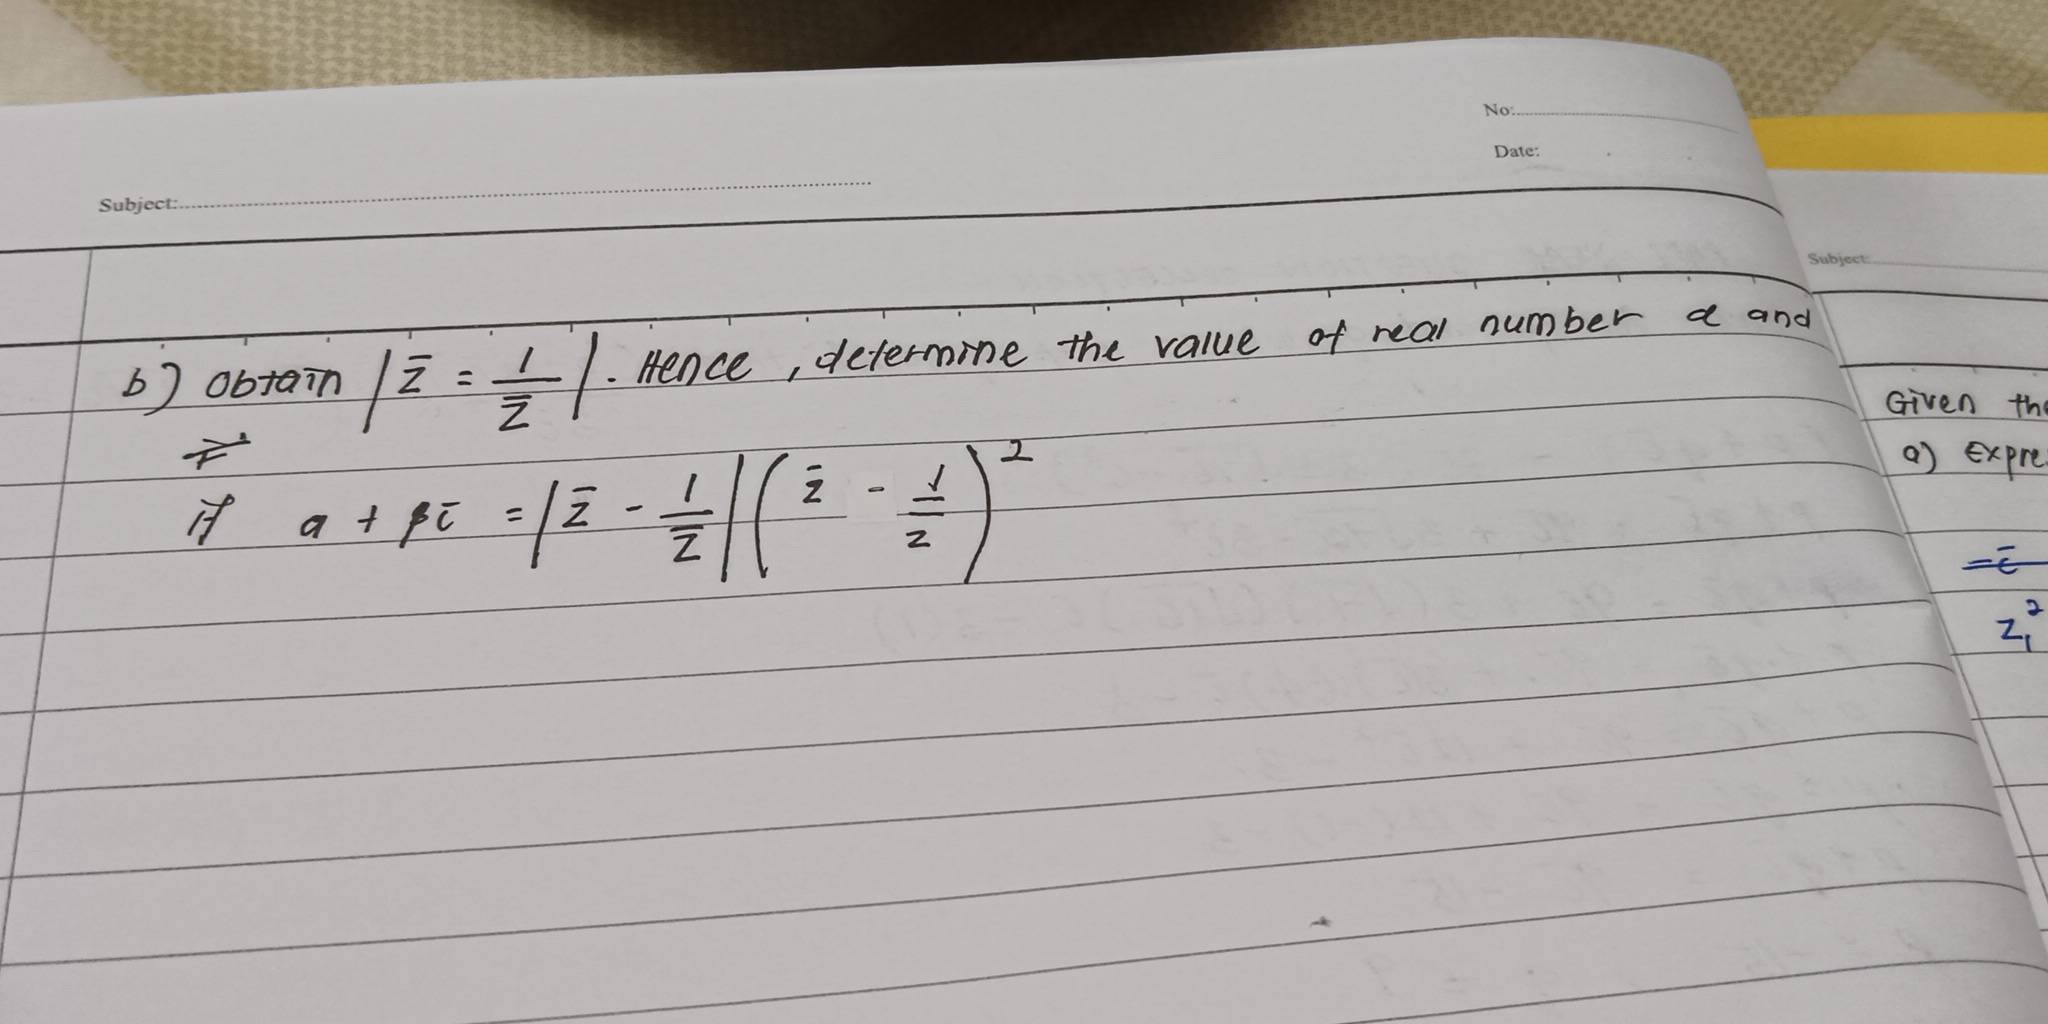 No:
Date:
Subject:
b) Obtain | z̄ = 1/z̄ |. Hence, determine the value of real number α and
if a + βi = | z̄ - 1/z̄ | ( z̄ - 1/z )²
Subject:
Given the
a) Expre
= i
z₁²